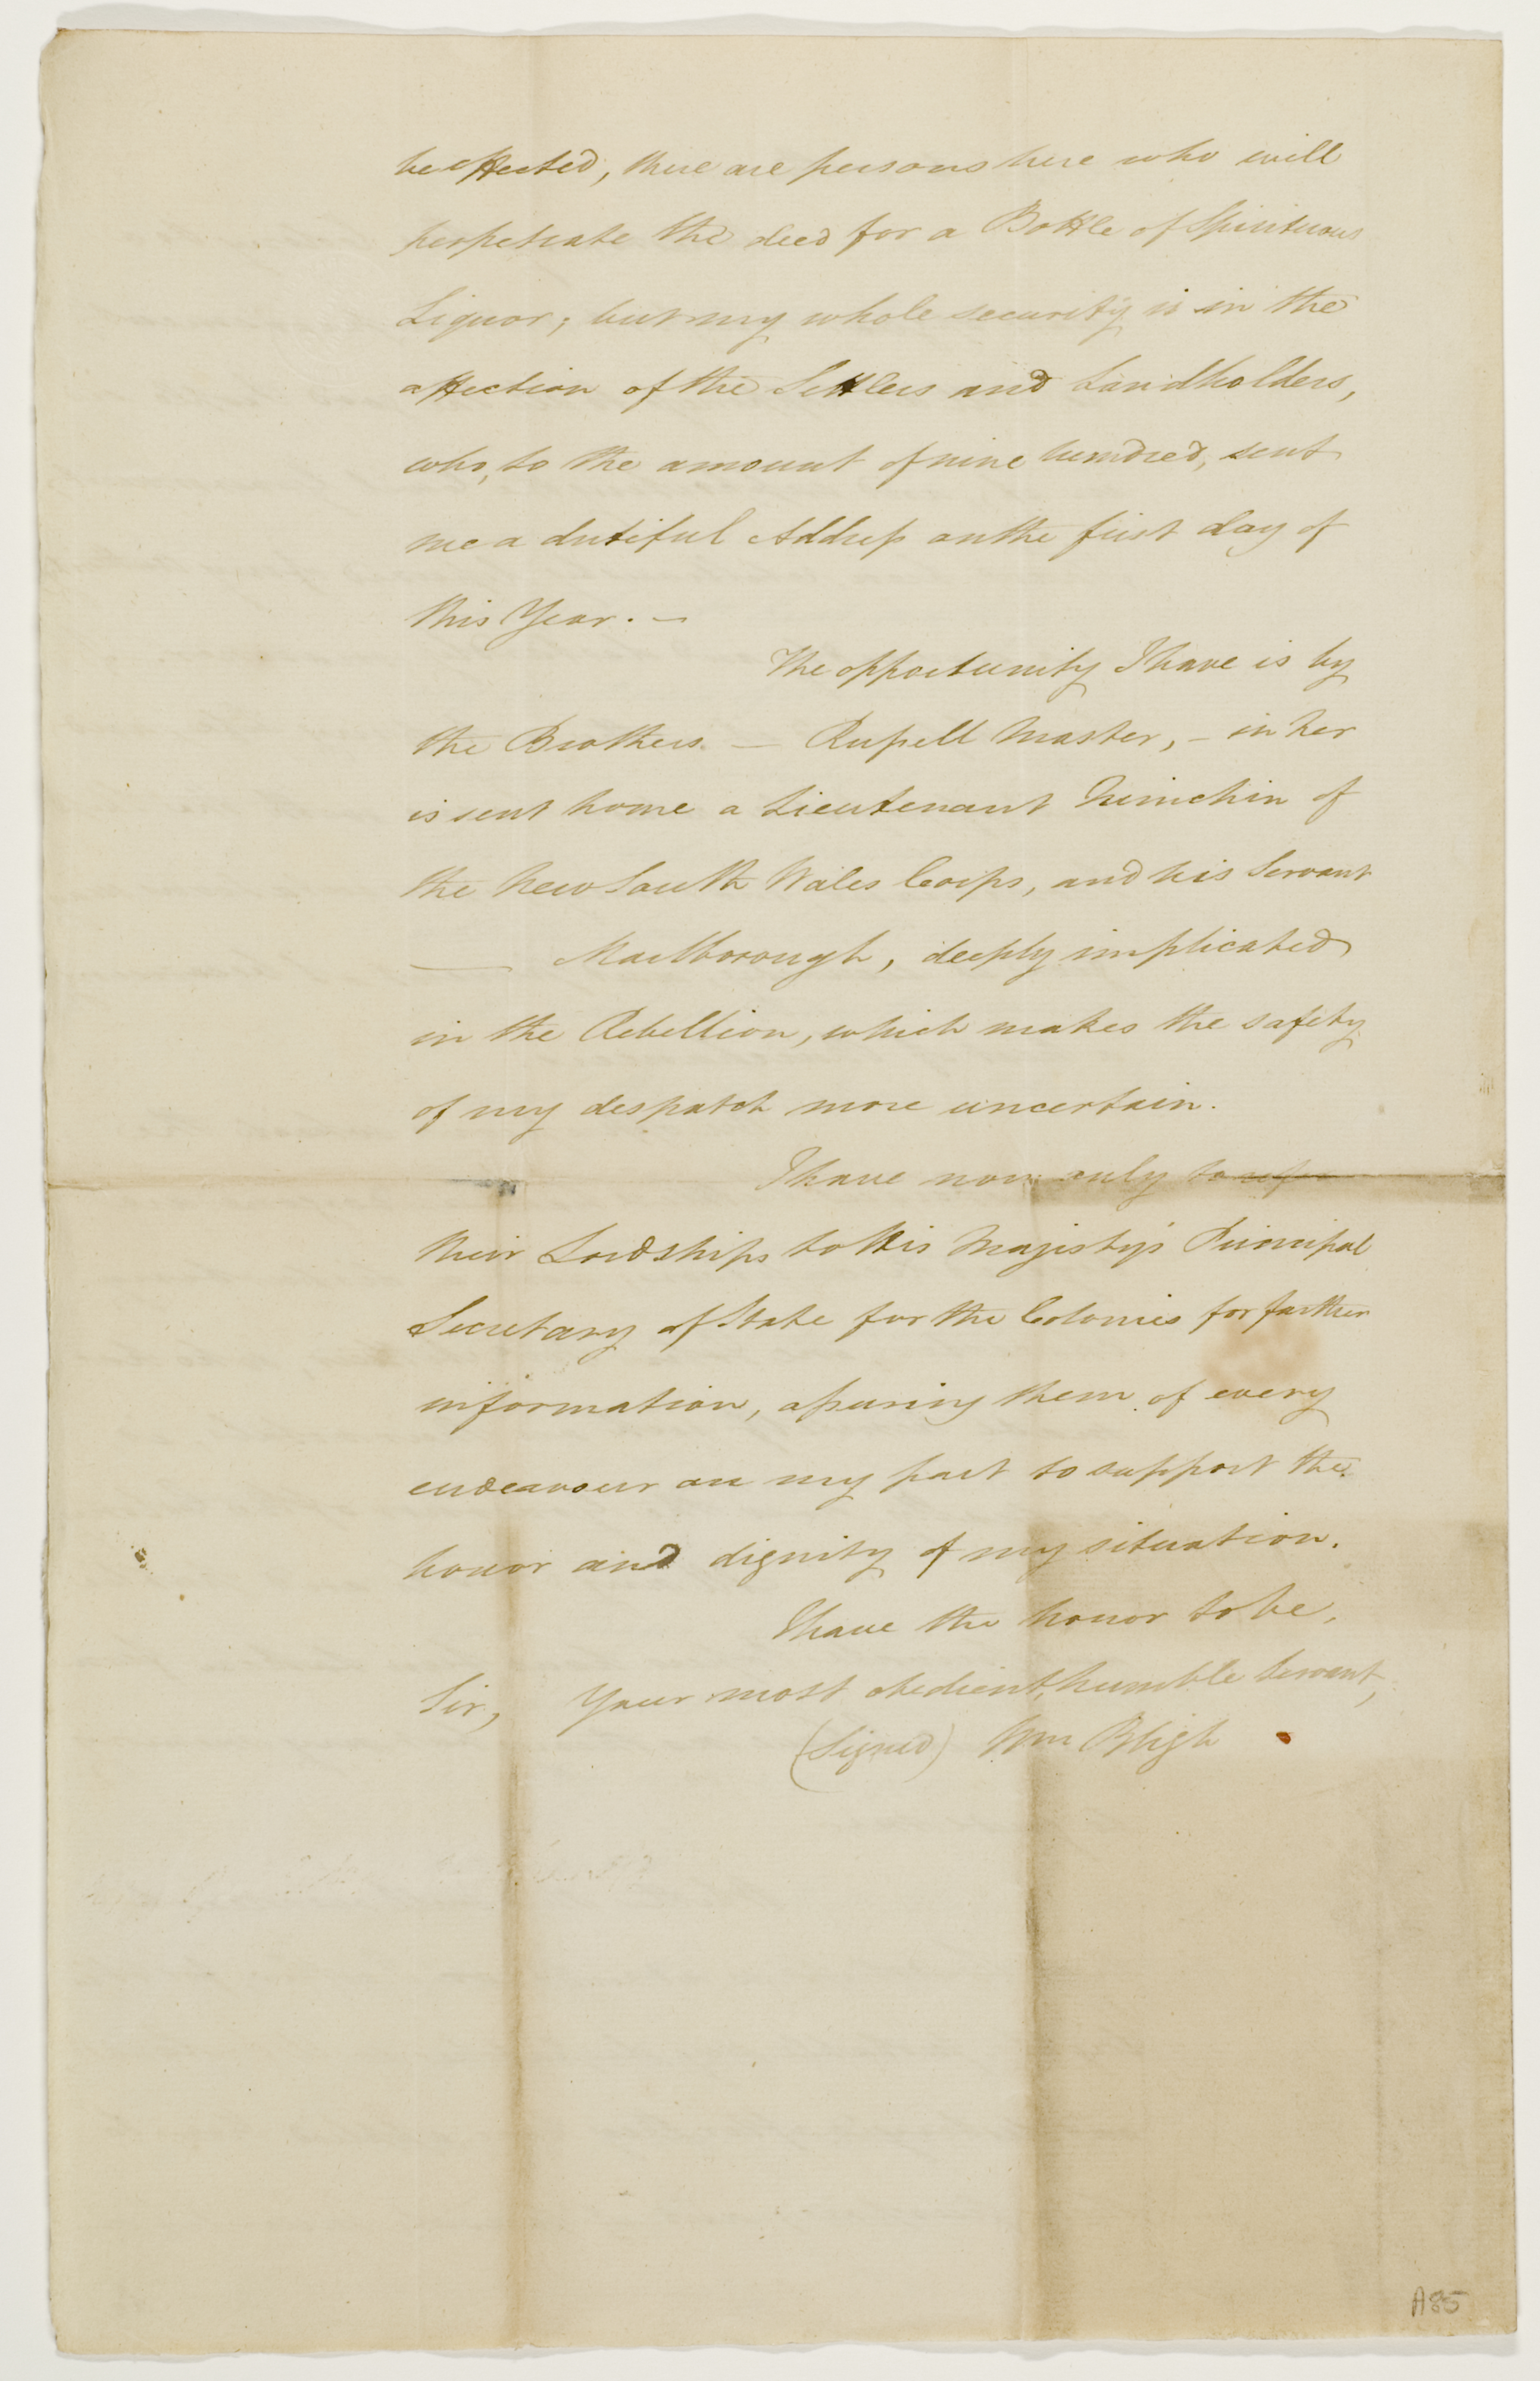 be effected, there are persons here who will
perpetrate the deed for a Bottle of Spirituous
Liquor; but my whole security is in the
affection of the Settlers and Landholders,
who, to the amount of nine hundred, sent
me a dutiful Address on the first day of
this Year. —
The opportunity I have is by
the Brothers — Russell Master, — in her
is sent home a Lieutenant Minchin of
the New South Wales Corps, and his Servant
— Marlborough, deeply implicated
in the Rebellion, which makes the safety
of my despatch more uncertain.
I have now only to refer
their Lordships to His Majesty's Principal
Secretary of State for the Colonies for farther
information, assuring them of every
endeavour on my part to support the
honor and dignity of my situation.
I have the honor to be,
Sir, Your most obedient, humble Servant,
(Signed) Wm Bligh
A85